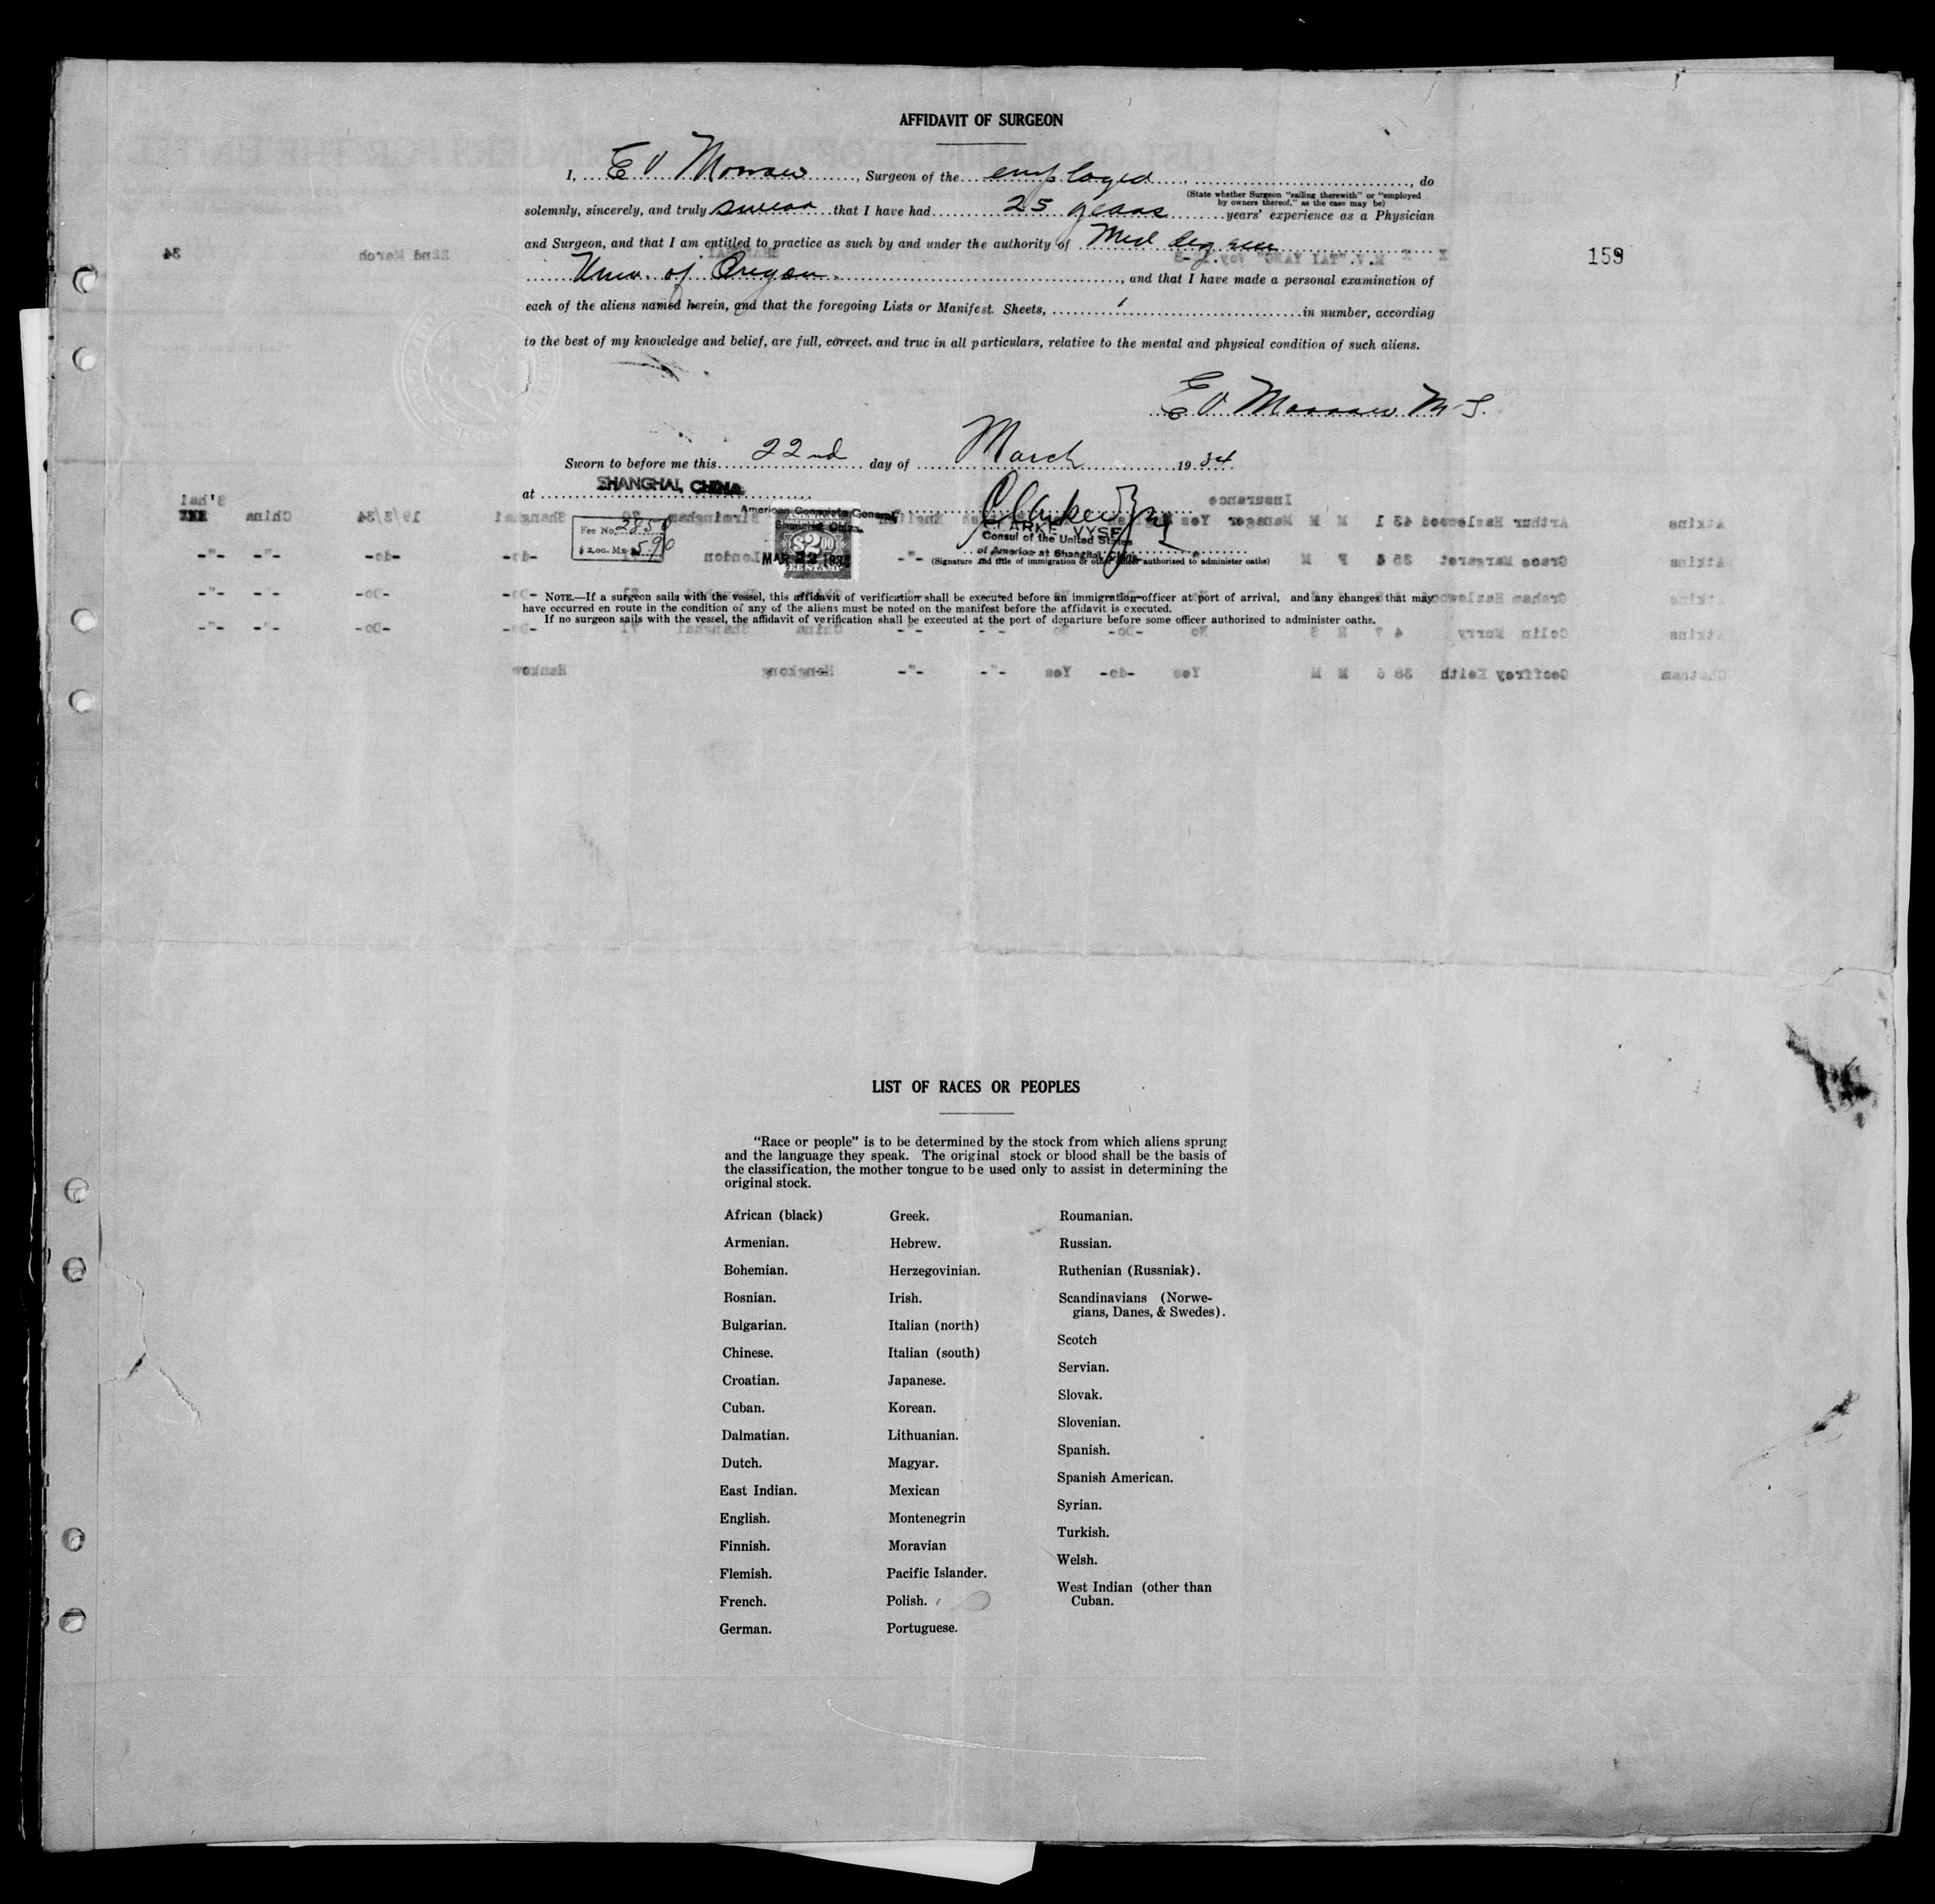 AFFIDAVIT OF SURGEON
I, E V Morrow, Surgeon of the employed, do
(State whether Surgeon "sailing therewith" or "employed
by owners thereof," as the case may be)
solemnly, sincerely, and truly swear that I have had 25 years years' experience as a Physician
and Surgeon, and that I am entitled to practice as such by and under the authority of Med degree
159
Univ. of Oregon, and that I have made a personal examination of
each of the aliens named herein, and that the foregoing Lists or Manifest Sheets, 1 in number, according
to the best of my knowledge and belief, are full, correct, and true in all particulars, relative to the mental and physical condition of such aliens.
E V Morrow M.D.
Sworn to before me this 22nd day of March 1934.
at SHANGHAI, CHINA
American Consulate General
Shanghai China
Fee No. 2850
$2.00 Mx 5.90
$2.00
FEE STAMP
MAR 22 1934
CLARKE VYSE
Consul of the United States
of America at Shanghai, China
(Signature and title of immigration or other officer authorized to administer oaths)
NOTE.—If a surgeon sails with the vessel, this affidavit of verification shall be executed before an immigration officer at port of arrival, and any changes that may
have occurred en route in the condition of any of the aliens must be noted on the manifest before the affidavit is executed.
If no surgeon sails with the vessel, the affidavit of verification shall be executed at the port of departure before some officer authorized to administer oaths.
LIST OF RACES OR PEOPLES
"Race or people" is to be determined by the stock from which aliens sprung
and the language they speak. The original stock or blood shall be the basis of
the classification, the mother tongue to be used only to assist in determining the
original stock.
African (black)
Armenian.
Bohemian.
Bosnian.
Bulgarian.
Chinese.
Croatian.
Cuban.
Dalmatian.
Dutch.
East Indian.
English.
Finnish.
Flemish.
French.
German.
Greek.
Hebrew.
Herzegovinian.
Irish.
Italian (north)
Italian (south)
Japanese.
Korean.
Lithuanian.
Magyar.
Mexican
Montenegrin
Moravian
Pacific Islander.
Polish.
Portuguese.
Roumanian.
Russian.
Ruthenian (Russniak).
Scandinavians (Norwe-
gians, Danes, & Swedes).
Scotch
Servian.
Slovak.
Slovenian.
Spanish.
Spanish American.
Syrian.
Turkish.
Welsh.
West Indian (other than
Cuban.